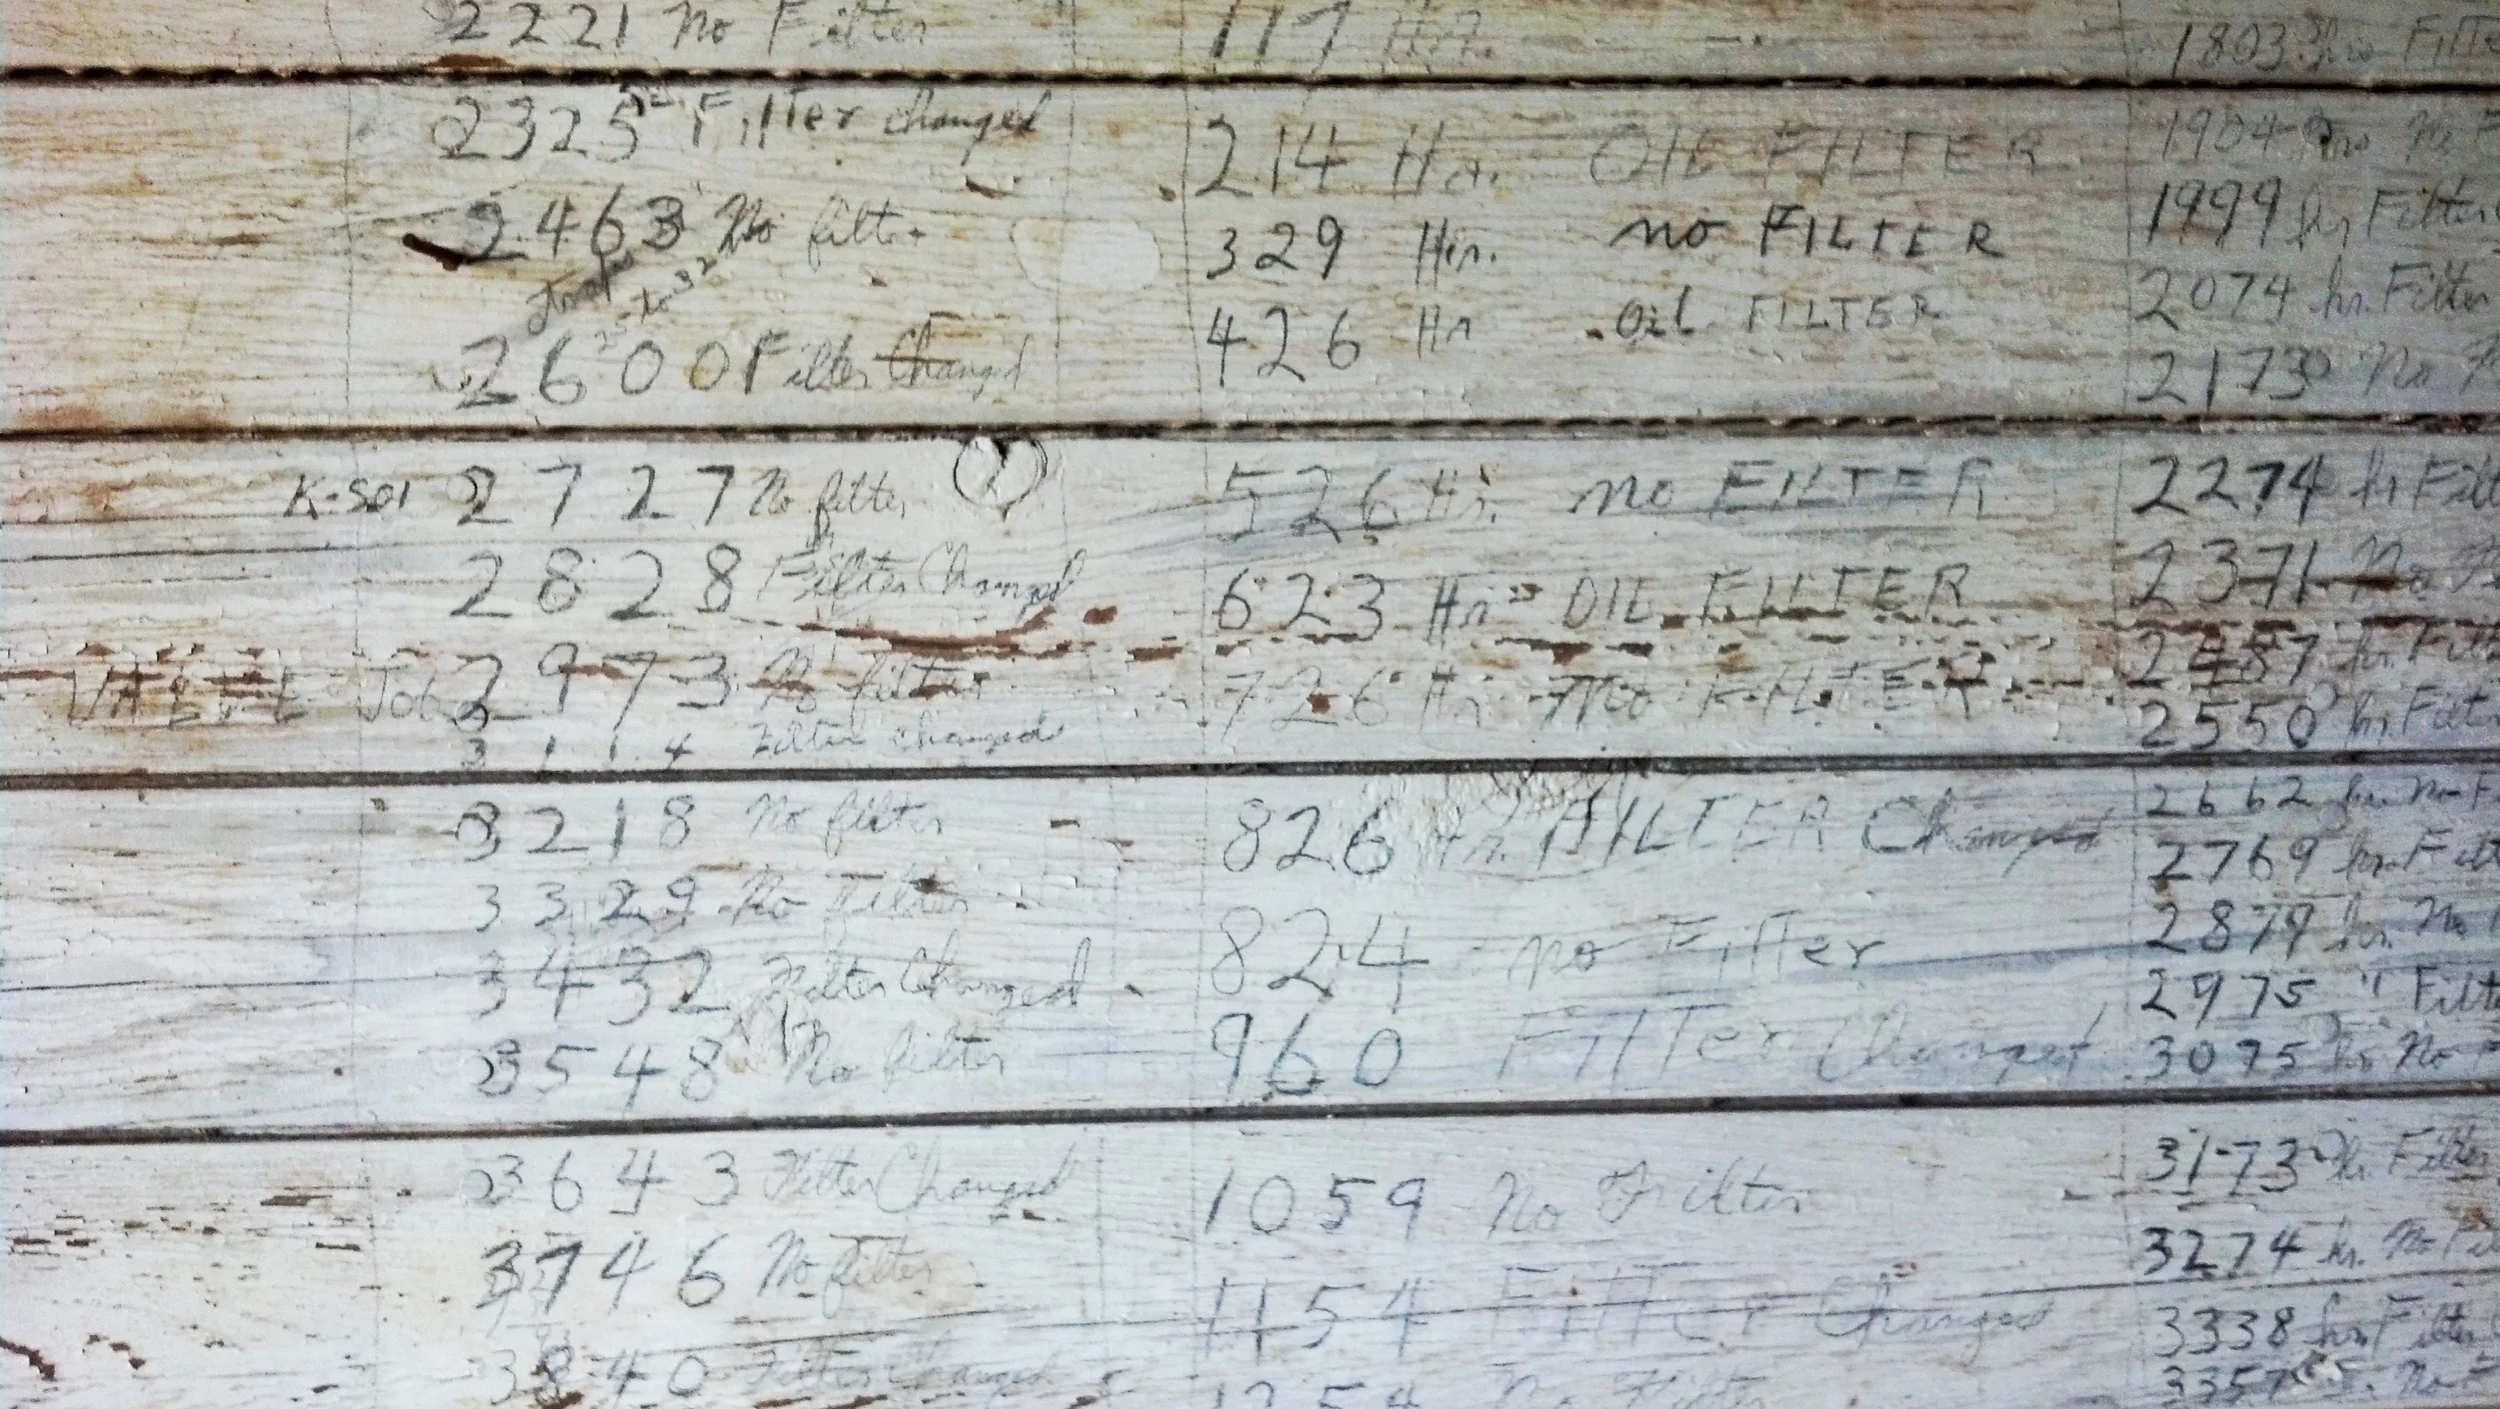 2221 No Filter
2325 Filter changed
2463 No filter
to 32
2600 Filter Changed
K-501 2727 No filter
2828 Filter Changed
VALVE Job 2973 No filter
3114 Filter changed
3218 No filter
3329 No Filter
3432 Filter Changed
3548 No filter
3643 Filter Changed
3746 No filter
3840 Filter Changed
117 Hr.
214 Hr. OIL FILTER
329 Hr. no FILTER
426 Hr Oil FILTER
526 Hr. no FILTER
623 Hr OIL FILTER
726 Hr no FILTER
826 Hr. FILTER Changed
824 no Filter
960 Filter Changed
1059 No Filter
1154 Filter Changed
1254 No Filter
1803 hrs Filte
1904 hrs No F
1999 hrs Filter
2074 hr. Filter
2173 No F
2274 hr Filt
2371 No F
2487 hr. Filt
2550 hr. Filt
2662 hr. No F
2769 hr. Filt
2879 hr. No
2975 " Filt
3075 hr No F
3173 hr. Filter
3274 hr. No Fil
3338 hr. Filter
3357 No F